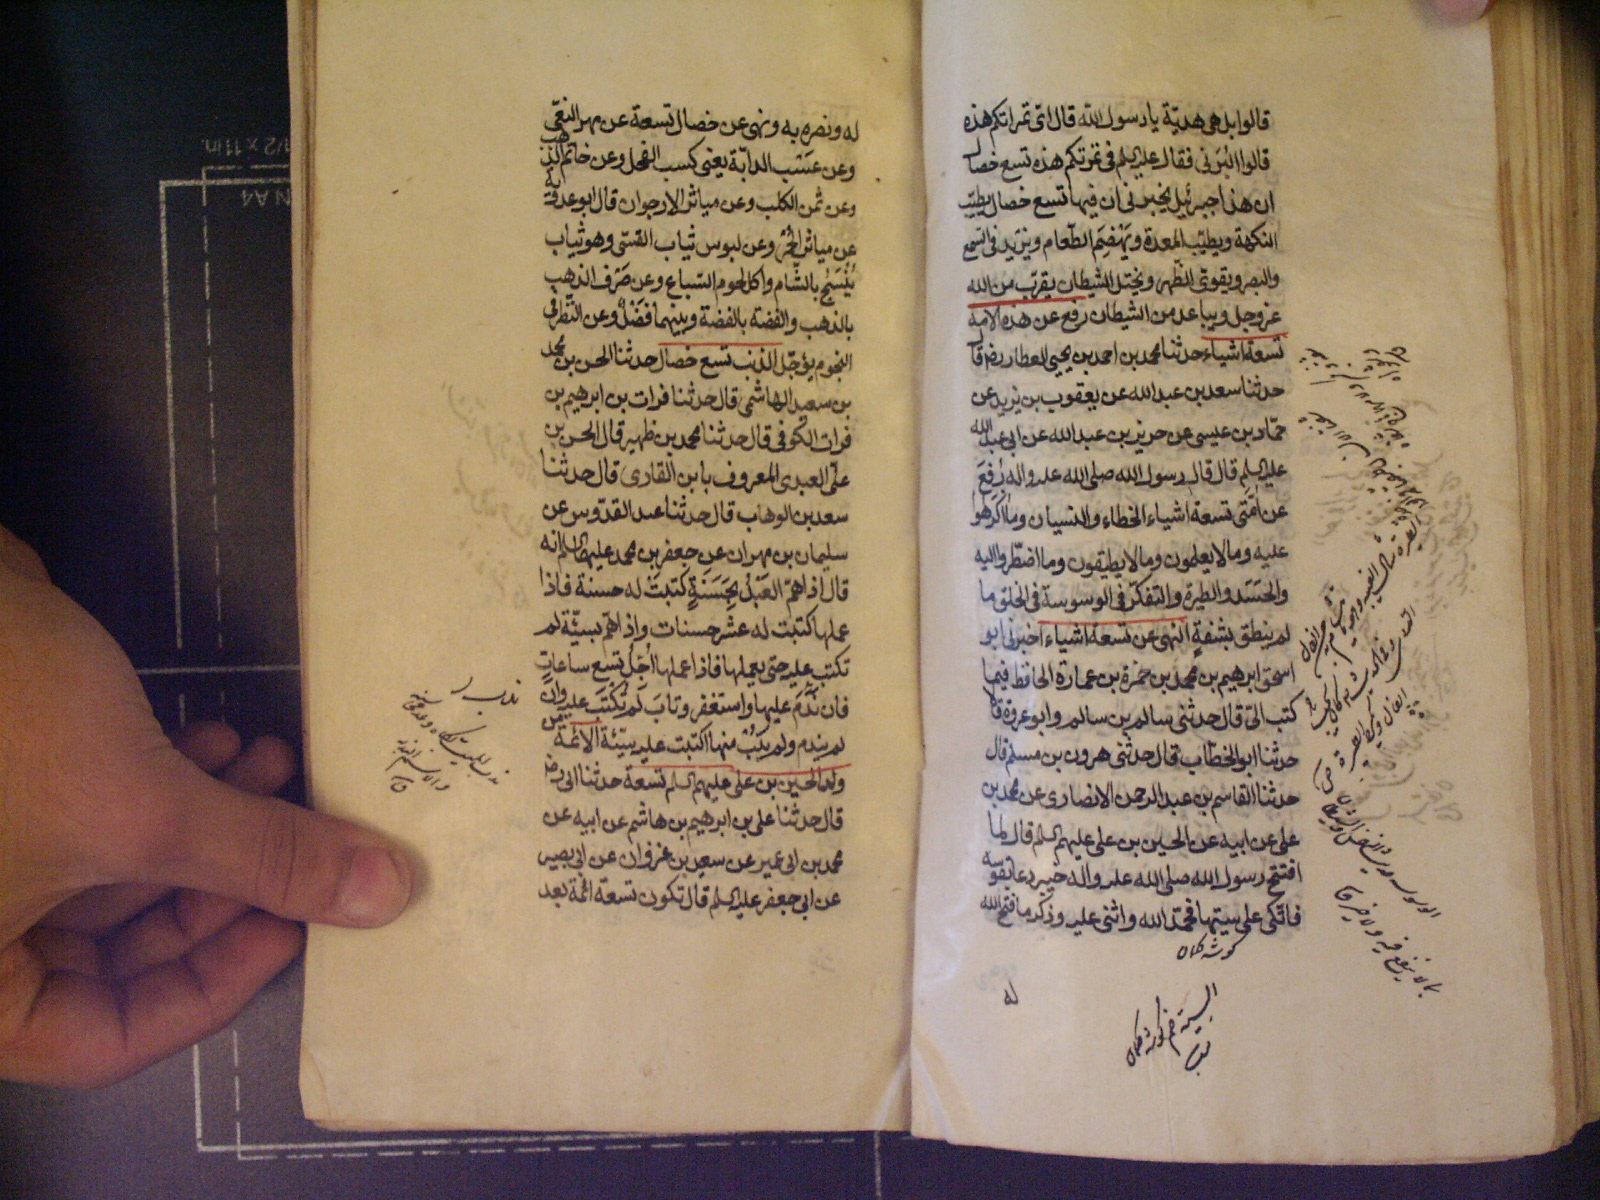 قالوا بل هي هديّة يا رسول الله قال اىّ تمراتكم هذه
قالوا البَرني فقال عليه السلم في تمرتكم هذه تسع خصال
ان هذا جبرئيل يخبرني ان فيها تسع خصال يطيّب
النكهة ويطيّب المعدة ويَهْضِم الطّعام ويزيد في السّمع
والبصر ويقوى الظّهر ويختل الشيطان يقرّب من الله
عزوجل ويباعد من الشيطان رفع عن هذه الامة
تسعة اشياء حدثنا محمد بن احمد بن يحيى العطار رضه قال
حدثنا سعد بن عبد الله عن يعقوب بن يزيد عن
حمّاد بن عيسى عن حريز بن عبد الله عن ابي عبد الله
عليه السلم قال قال رسول الله صلى الله عليه واله رُفعَ
عن امّتي تسعة اشياء الخطاء والنسيان وما اُكرهوا
عليه وما لا يعلمون وما لا يطيقون وما اضطّروا اليه
والحَسَد والطيرة والتفكّر في الوسوسة في الخلق ما
لم ينطق بشفةٍ النهى عن تسعة اشياء اخبرني ابو
اسحق ابرهيم بن محمد بن حمزة بن عمارة الحافظ فيما
كتب الىّ قال حدثني سالم بن سالم وابو عروة قالا
حدثنا ابو الخطّاب قال حدثني هرون بن مسلم قال
حدثنا القاسم بن عبد الرحمن الانصارى عن محمد بن
على عن ابيه عن الحسين بن على عليهم السلم قال لما
افتتح رسول الله صلى الله عليه واله خيبر دعا بقوسه
فاتّكى على سيتها فحمّد الله واثنى عليه وذكر ما فتح الله
كوشه كمان
له
له ونصره به ونهى عن خصال تسعة عن مهر البغىّ
وعن عَسْب الدابّة يعنى كسب الفحل وعن خاتم الذهب
وعن ثمن الكلب وعن مياثر الارجوان قال ابو عروبة
عن مياثر الحُمْر وعن لبوس ثياب القسىّ وهو ثياب
يُنْسَج بالشام واكل لحوم السّباع وعن صَرْف الذهب
بالذهب والفضة بالفضة وبينهما فَضْلٌ وعن النّظر في
النجوم يؤجّل الذنب تسع خصال حدثنا الحسن بن محمد
بن سعيد الهاشمي قال حدثنا فرات بن ابرهيم بن
فرات الكوفي قال حدثنا محمد بن ظهير قال الحسن بن
علىّ العبدى المعروف بابن القارى قال حدثنا
سعد بن الوهاب قال حدثنا عبد القدّوس عن
سليمان بن مهران عن جعفر بن محمد عليهما السلم انه
قال اذا همّ العَبْدُ بِحَسَنَةٍ كتبَتْ له حسنة فاذا
عملها كتبت له عشر حسنات واذا همّ بسيّئة لم
تكتب عليه حتى يعملها فاذا عملها اُجّل تسع ساعاتٍ
فان نَدَمَ عليها واستغفر وتابَ لم يُكْتَبَ عليه وان
لم يندم ولم يَتُبْ منها اكتبت عليه سيّئة الائمّة من
ولد الحسين بن على عليهم السلم تسعة حدثنا ابي رضه
قال حدثنا على بن ابرهيم بن هاشم عن ابيه عن
محمد بن ابي عمير عن سعيد بن غزوان عن ابي بصير
عن ابي جعفر عليه السلم قال تكون تسعة ائمّة بعد